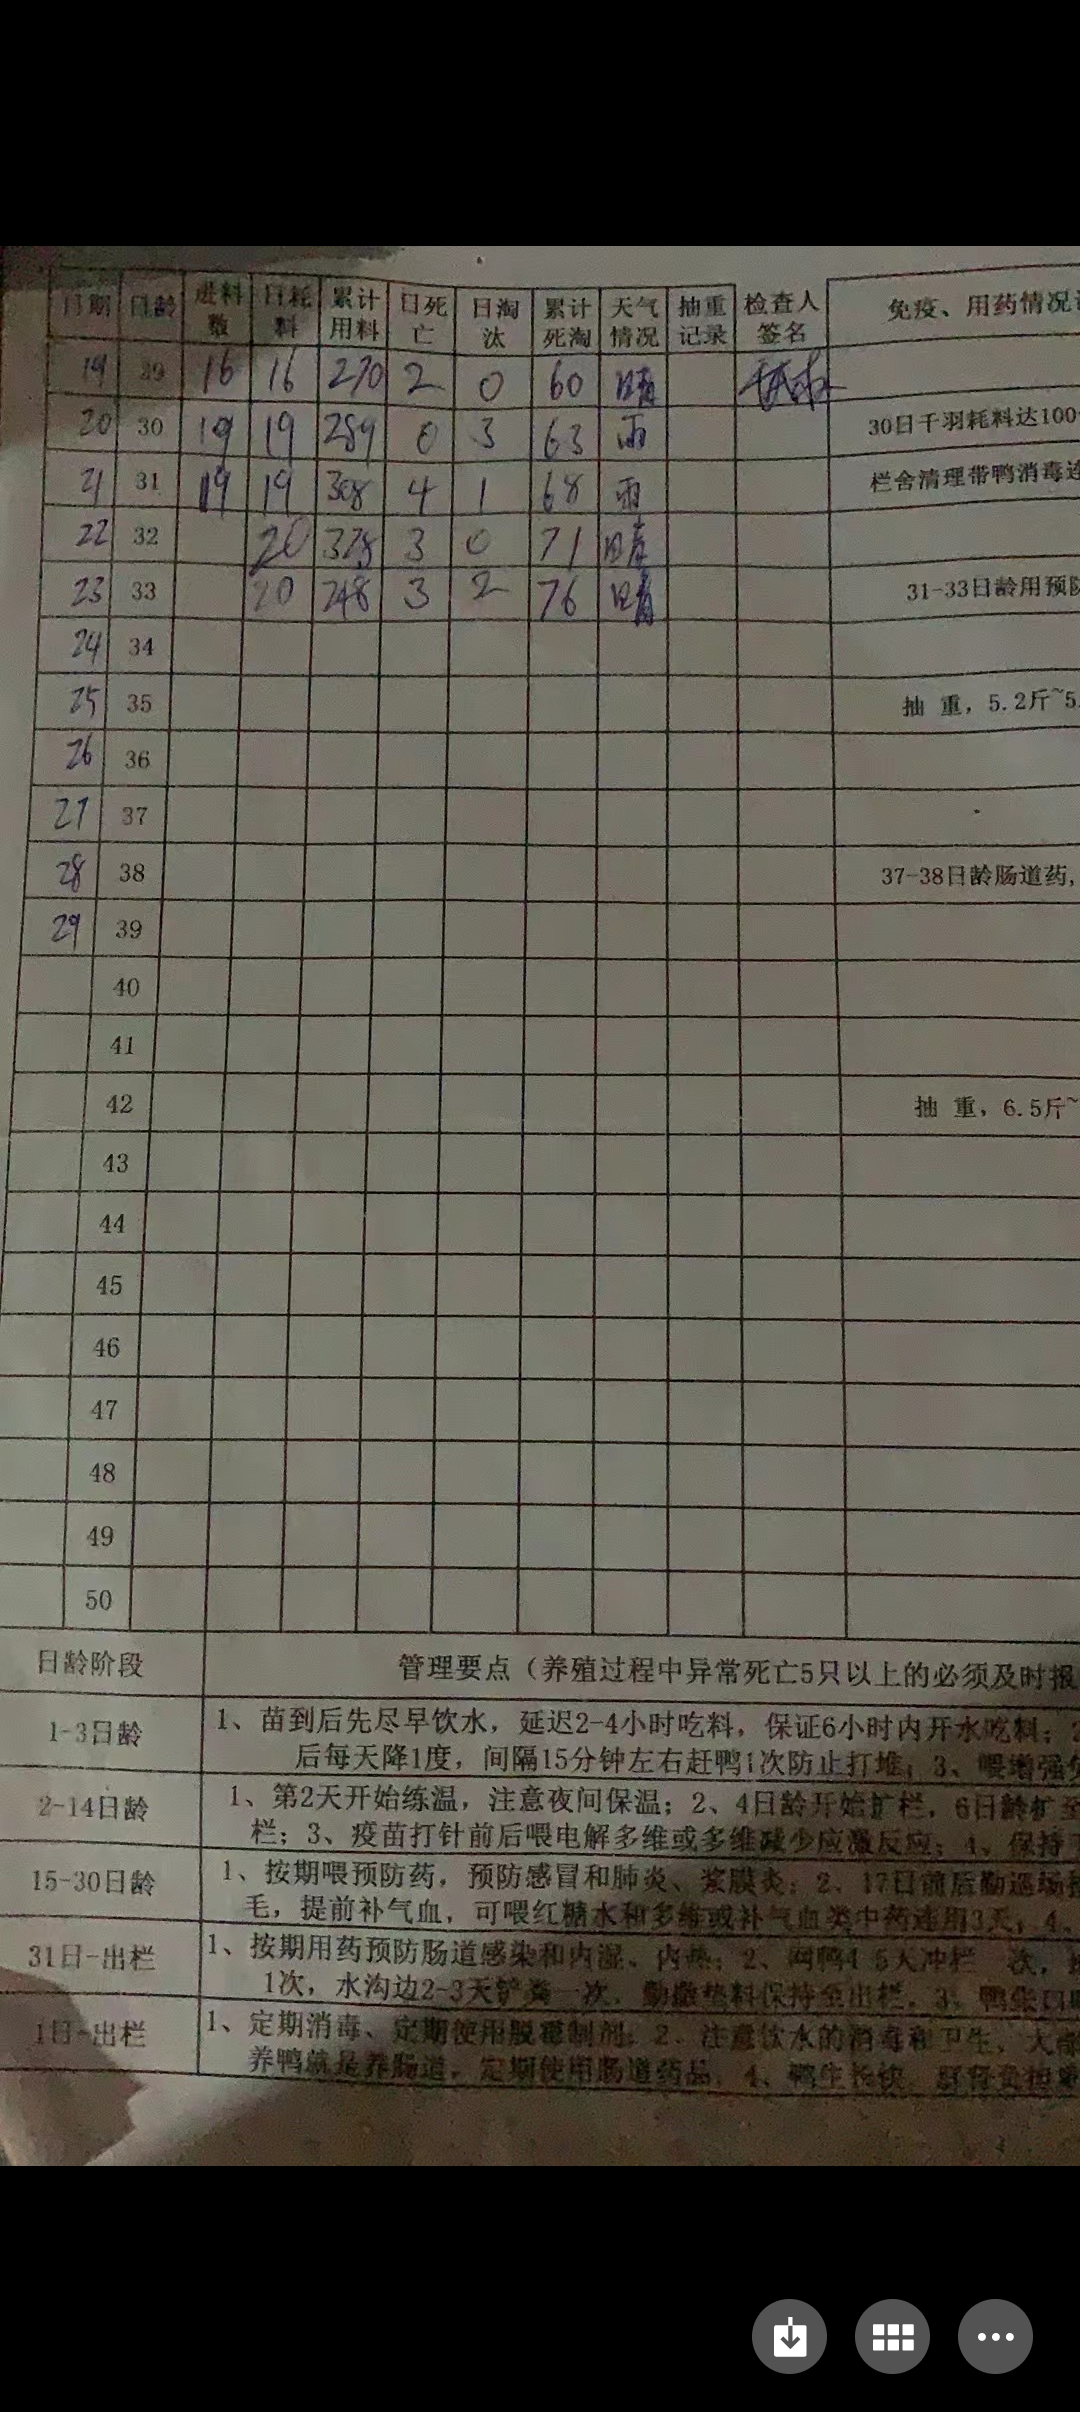 日期 日龄 进料数 日耗料 累计用料 日死亡 日淘汰 累计死淘 天气情况 抽重记录 检查人签名 免疫、用药情况
19 29 16 16 270 2 0 60 晴
20 30 19 19 289 0 3 63 雨 30日千羽耗料达100
21 31 19 19 308 4 1 68 雨 栏舍清理带鸭消毒连
22 32 20 328 3 0 71 晴
23 33 20 248 3 2 76 晴 31-33日龄用预防
24 34
25 35 抽 重，5.2斤~5.
26 36
27 37
28 38 37-38日龄肠道药，
29 39
40
41
42 抽 重，6.5斤~
43
44
45
46
47
48
49
50
日龄阶段 管理要点（养殖过程中异常死亡5只以上的必须及时报
1-3日龄 1、苗到后先尽早饮水，延迟2-4小时吃料，保证6小时内开水吃料；2
后每天降1度，间隔15分钟左右赶鸭1次防止打堆；3、喂增强免
2-14日龄 1、第2天开始练温，注意夜间保温；2、4日龄开始扩栏，6日龄扩至
栏；3、疫苗打针前后喂电解多维或多维减少应激反应；4、保持
15-30日龄 1、按期喂预防药，预防感冒和肺炎、浆膜炎；2、17日前后勤巡场
毛，提前补气血，可喂红糖水和多维或补气血类中药连用3天；4、
31日-出栏 1、按期用药预防肠道感染和内湿、内热；2、网鸭4-5天冲栏一次，
1次，水沟边2-3天铲粪一次，勤撒垫料保持至出栏。3、鸭张口
1日-出栏 1、定期消毒、定期使用脱霉制剂；2、注意饮水的消毒和卫生，大部
养鸭就是养肠道，定期使用肠道药品。4、鸭生长快，肝肾负担